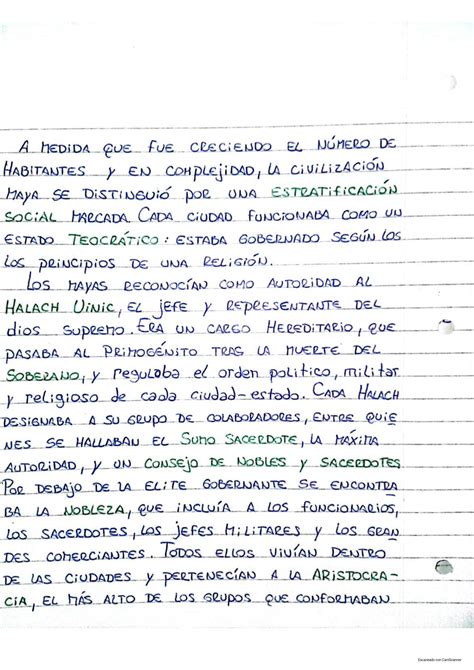 A MEDIDA QUE FUE CRECIENDO EL NÚMERO DE
HABITANTES Y EN COMPLEJIDAD, LA CIVILIZACIÓN
MAYA SE DISTINGUIÓ POR UNA ESTRATIFICACIÓN
SOCIAL MARCADA. CADA CIUDAD FUNCIONABA COMO UN
ESTADO TEOCRÁTICO: ESTABA GOBERNADO SEGÚN LOS
LOS PRINCIPIOS DE UNA RELIGIÓN.
LOS MAYAS RECONOCÍAN COMO AUTORIDAD AL
HALACH UINIC, EL JEFE Y REPRESENTANTE DEL
dios SUPREMO. ERA UN CARGO HEREDITARIO, QUE
PASABA AL PRIMOGÉNITO TRAS LA MUERTE DEL
SOBERANO, y regulaba el orden politico, militar
y religioso de cada ciudad-estado. CADA HALACH
DESIGNABA A SU GRUPO DE COLABORADORES, ENTRE QUIE
NES SE HALLABAN EL SUMO SACERDOTE, LA MÁXIMA
AUTORIDAD, Y UN CONSEJO DE NOBLES Y SACERDOTES
POR DEBAJO DE LA ELITE GOBERNANTE SE ENCONTRA
BA LA NOBLEZA, QUE INCLUÍA A LOS FUNCIONARIOS,
LOS SACERDOTES, LOS JEFES MILITARES Y LOS GRAN
DES COMERCIANTES. TODOS ELLOS VIVÍAN DENTRO
DE LAS CIUDADES Y PERTENECÍAN A LA ARISTOCRA-
CIA, EL MÁS ALTO DE LOS GRUPOS QUE CONFORMABAN
Escaneado con CamScanner